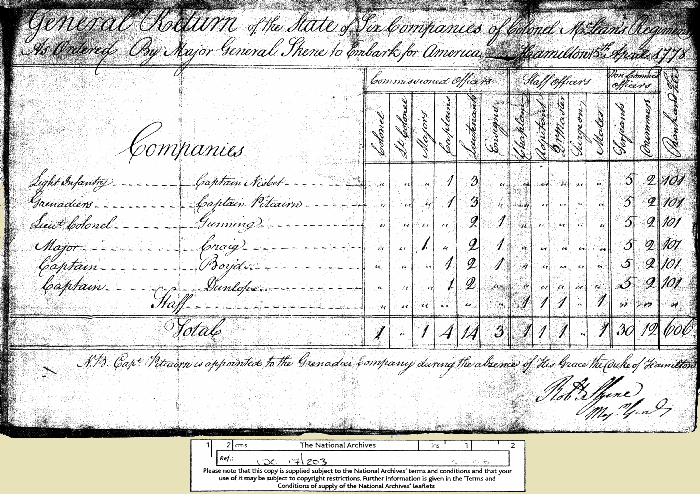 General Return of the State of Six Companies of Colonel McLean's Regiment
As Ordered By Major General Skene to Embark for America Hamilton 15th April 1778
Companies
Commissioned Officers
Staff Officers
Non Commissioned Officers
Colonel Lt Colonel Majors Captains Lieutenants Ensigns Chaplain Adjutant Qr Master Surgeon Mates Serjeants Drummers Rank and File
Light Infantry Captain Nisbet " " " 1 3 " " " " " " 5 2 101
Grenadiers Captain Pitcairn " " " 1 3 " " " " " " 5 2 101
Lieut Colonel Gunning 2 1 " " " " " 5 2 101
Major Craig " " 1 " 2 1 " " " " " 5 2 101
Captain Boyd " " " 1 2 1 " " " " " 5 2 101
Captain Dunlop " " " 1 2 " " " " " 5 2 101
Staff " " " " " " 1 1 1 " 1 " " "
Total 1 " 1 4 14 3 1 1 1 " 1 30 12 606
N.B. Capt Pitcairn is appointed to the Grenadier Company during the absence of His Grace the Duke of Hamilton
Robt Skene
Majr Genl
1 2 cms The National Archives ins 1 2
Ref.: WO 17/203
Please note that this copy is supplied subject to the National Archives' terms and conditions and that your
use of it may be subject to copyright restrictions. Further information is given in the 'Terms and
Conditions of supply of the National Archives' leaflets